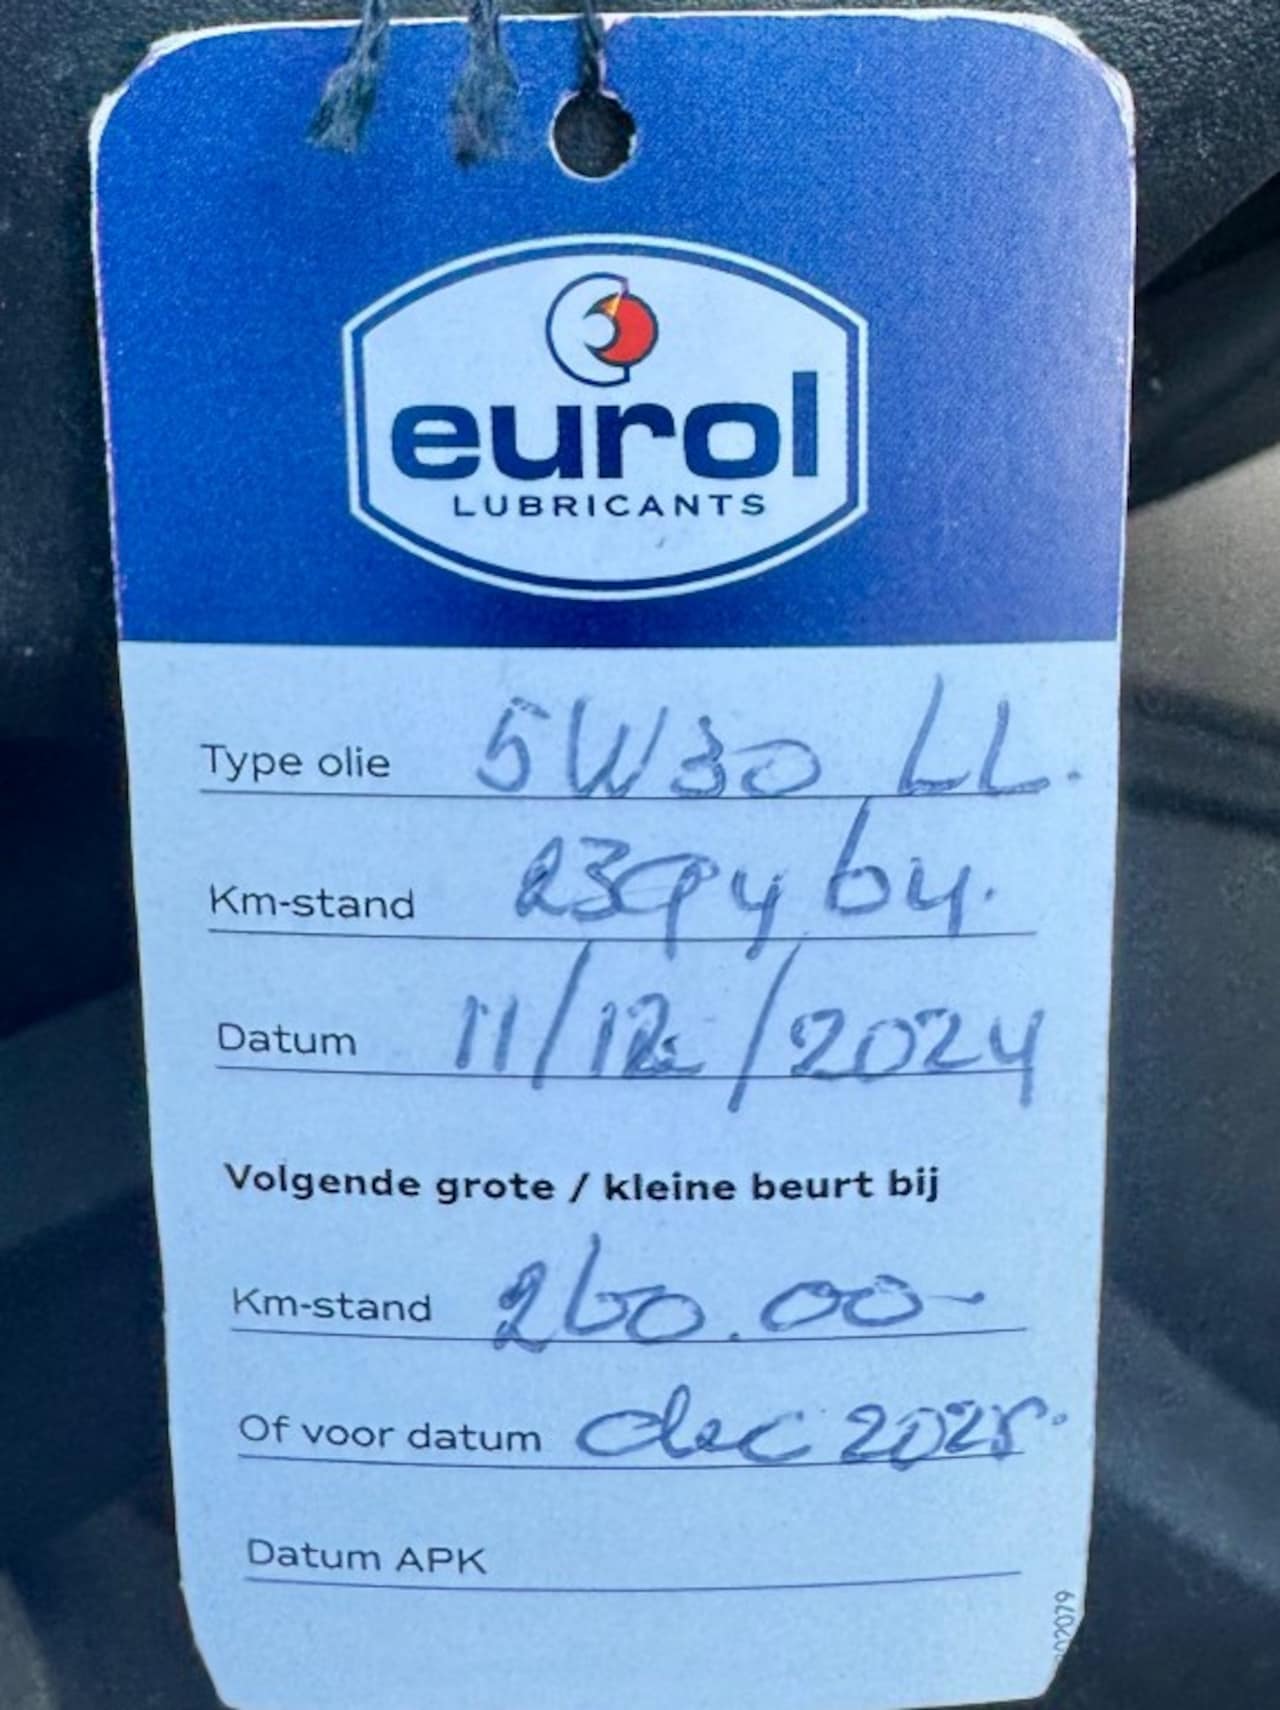 eurol
LUBRICANTS
Type olie 5W30 LL.
Km-stand
Datum 11/12/2024
Volgende grote / kleine beurt bij
Km-stand 260.00-
Of voor datum dec 2025.
Datum APK